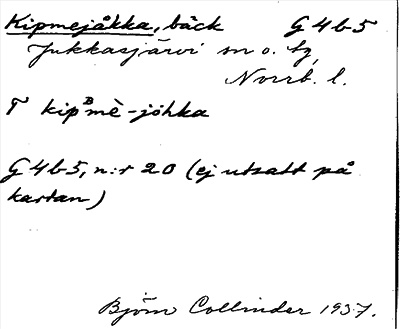 Kipmejåkka, bäck G 4 b 5
Jukkasjärvi sn o. tg,
Norrb. l.
T kipᴮmè-jöhka
G 4 b 5, n:r 20 (ej utsatt på
kartan)
Björn Collinder 1937.